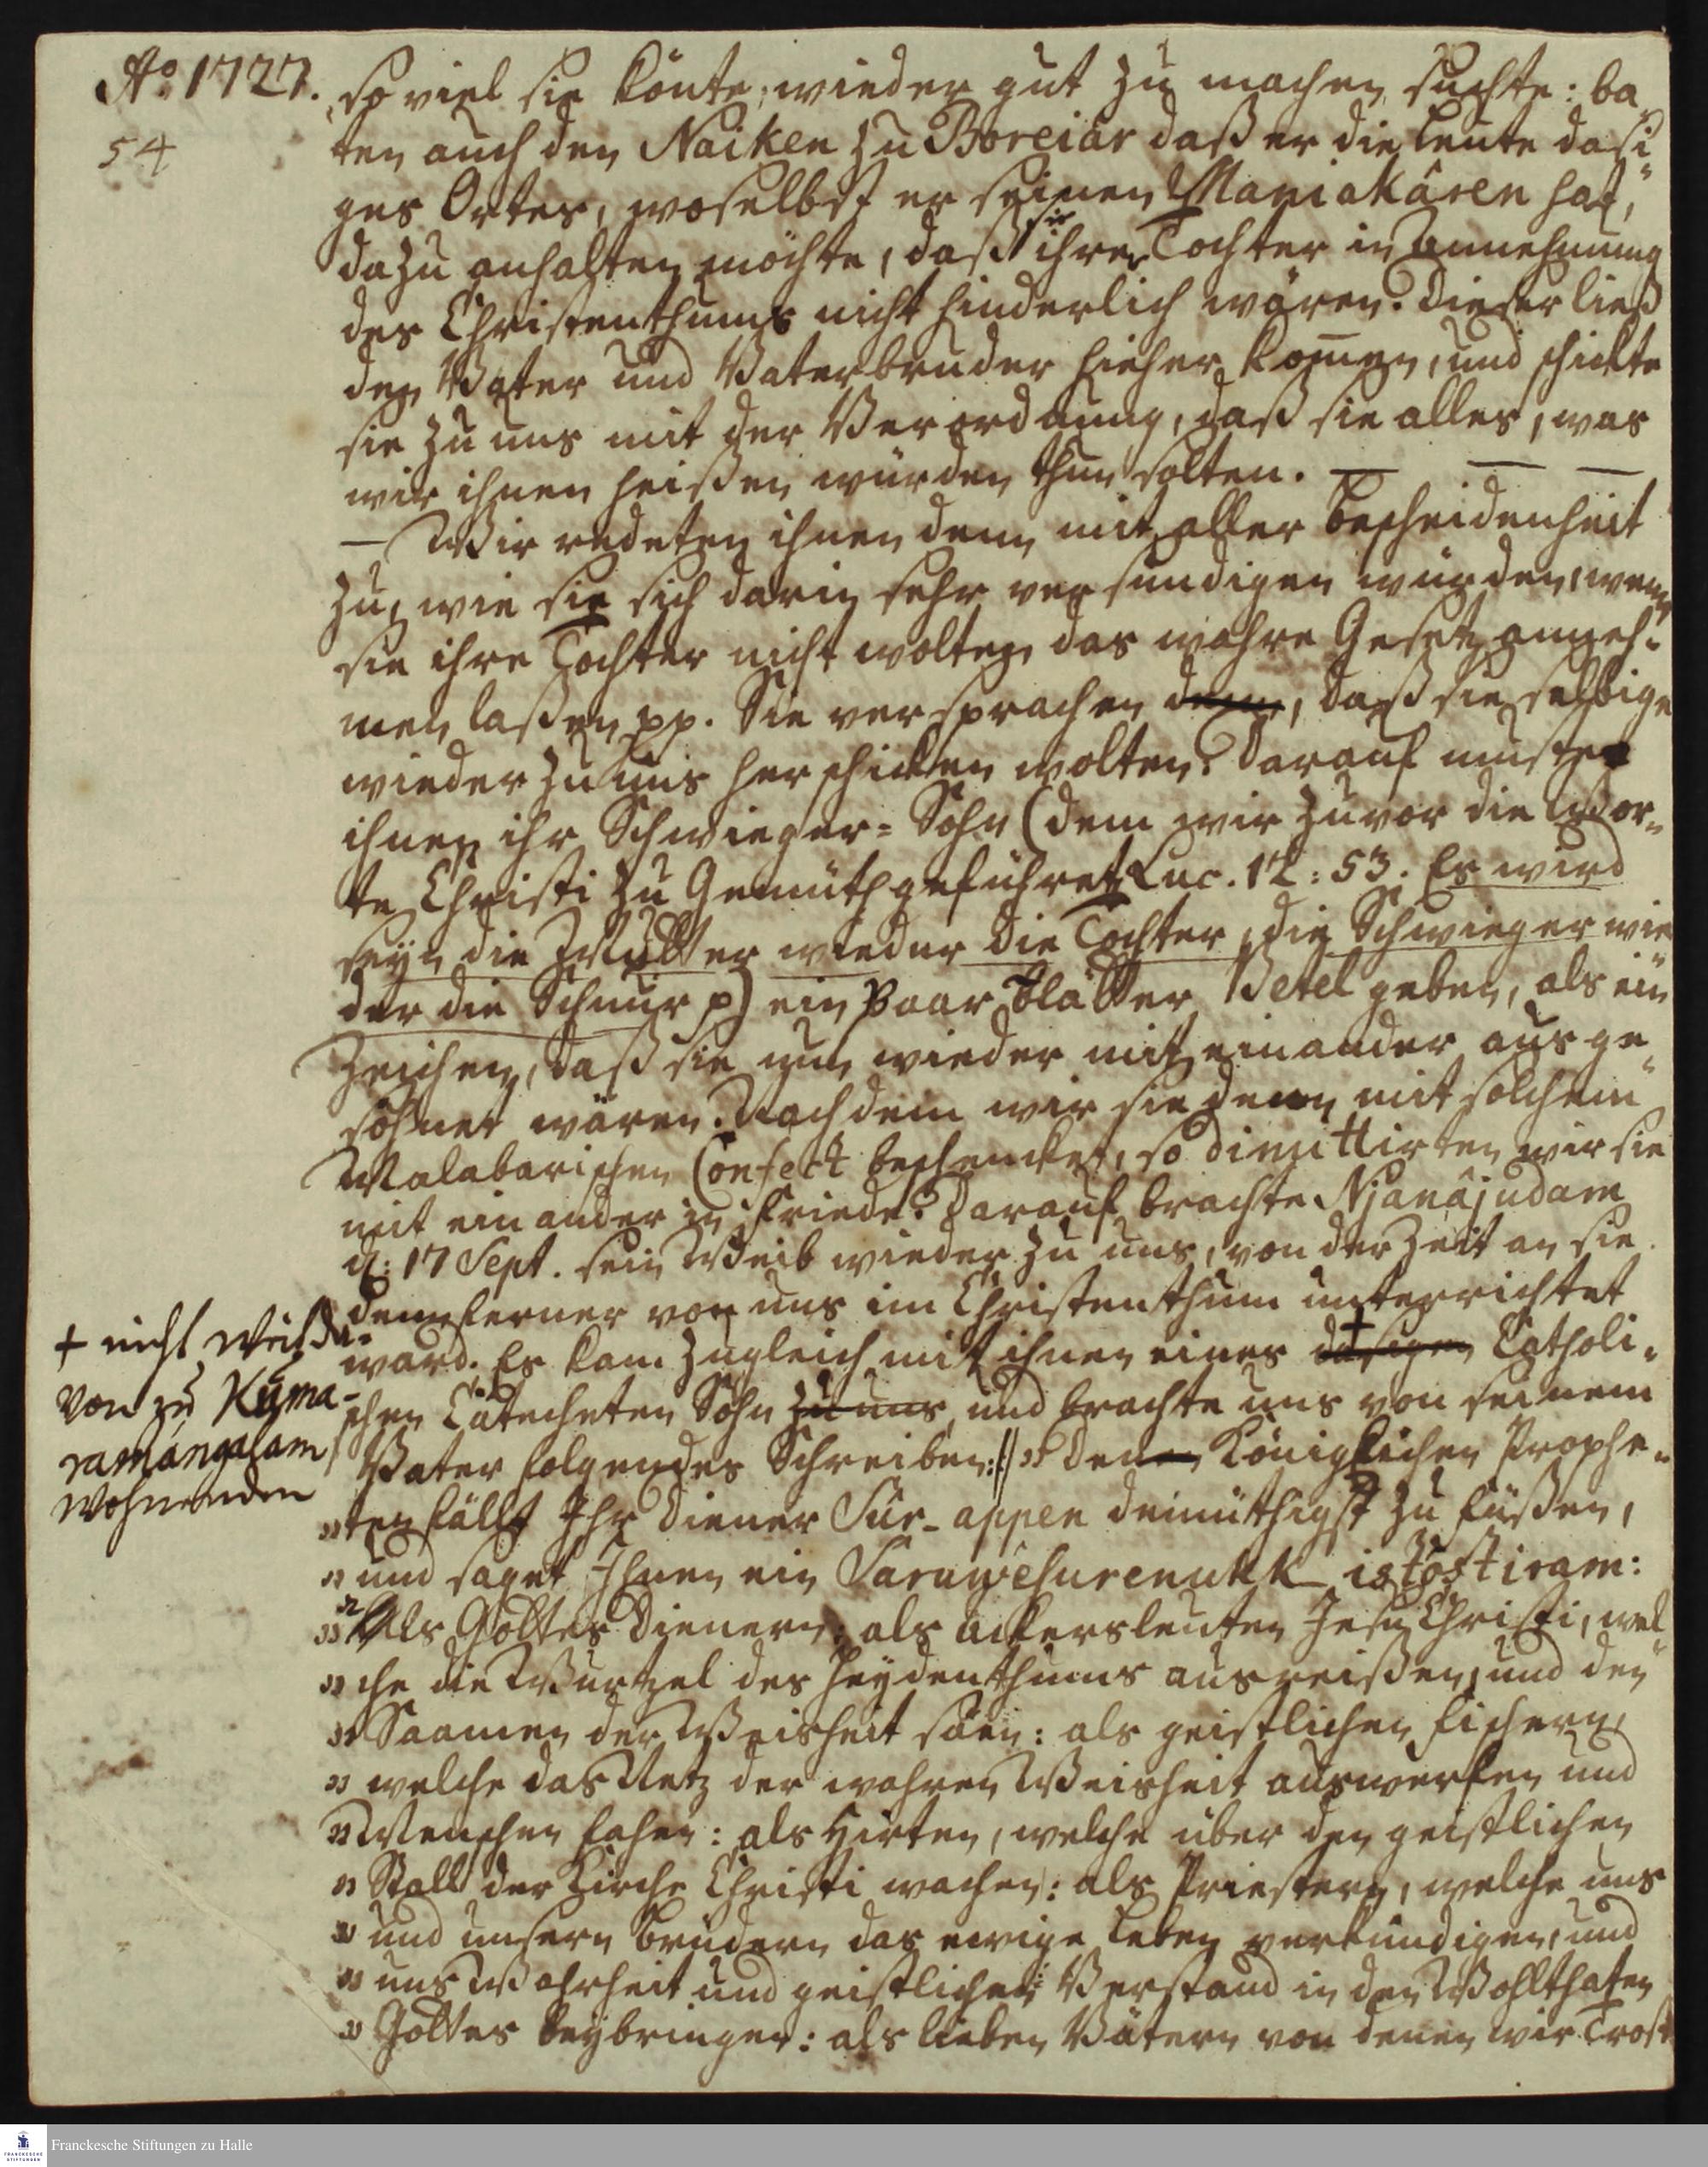 Ao 1727.
54
so viel sie könte, wieder gut zu machen suchte: ba„
ten auch den Naiken zu Boreiâr daß er die Leute dasi„
ges Ortes, woselbst er seinen Maniakâren hat,
dazu anhalten möchte, daß sie ihrer Tochter in Annehmung
des Christenthums nicht hinderlich wären. Dieser ließ
den Vater und Vaterbruder hieher kom̅en, und schickte
sie zu uns mit der Verordnung, daß sie alles, was
wir ihnen heißen würden thun solten. — — —
— Wir redeten ihnen denn mit aller Bescheidenheit
zu, wie sie sich darin sehr versündigen würden, wenn
sie ihre Tochter nicht wolten das wahre Gesetz anneh„
men laßen pp. Sie versprachen denn, daß sie selbige
wieder zu uns herschicken wolten. Darauf muste
ihnen ihr Schwieger=Sohn (dem wir zuvor die Wor„
te Christi zu Gemüth geführet Luc. 12: 53. Es wird
seyn die Mutter wieder die Tochter, die Schwieger wie
der die Schnur p) ein Paar Blätter Betel geben, als ein
Zeichen, daß sie nun wieder mit einander ausge„
söhnet wären. Nachdem wir sie denn mit solchem
Malabarischen Confect beschencket, so dimittirten wir sie
mit einander in Friede. Darauf brachte Njanâjudam
d. 17 Sept. sein Weib wieder zu uns, von der Zeit an sie
denn ferner von uns im Christenthum unterrichtet
ward. Es kam zugleich mit ihnen eines dasigen + Catholi„
schen Catecheten Sohn zu uns, und brachte uns von seinem
Vater folgendes Schreiben: „Denen Königlichen Prophe„
„ten fällt Ihr Diener Sûr-appen demüthigst zu Füßen,
„und saget Ihnen ein Saruwêsurenukk istôstiram:
„Als Gottes Dienern: als Ackersleuten Jesu Christi, wel
„che die Wurtzel des Heydenthums ausreißen, und den
„Saamen der Weisheit säen: als geistlichen Fischern,
„welche das Netz der wahren Weisheit auswerfen und
„Menschen fahen: als Hirten, welche über den geistlichen
„Stall der Kirche Christi wachen: als Priestern, welche uns
„und unsern Brüdern das ewige Leben verkündigen, und
„uns Wahrheit und geistlichen Verstand in den Wohlthaten
„Gottes beybringen: als lieben Vätern von denen wir Trost
+ nicht weit da=
von zu Kuma-
ramangalam
wohnenden
FRANCKESCHE STIFTUNGEN
Franckesche Stiftungen zu Halle